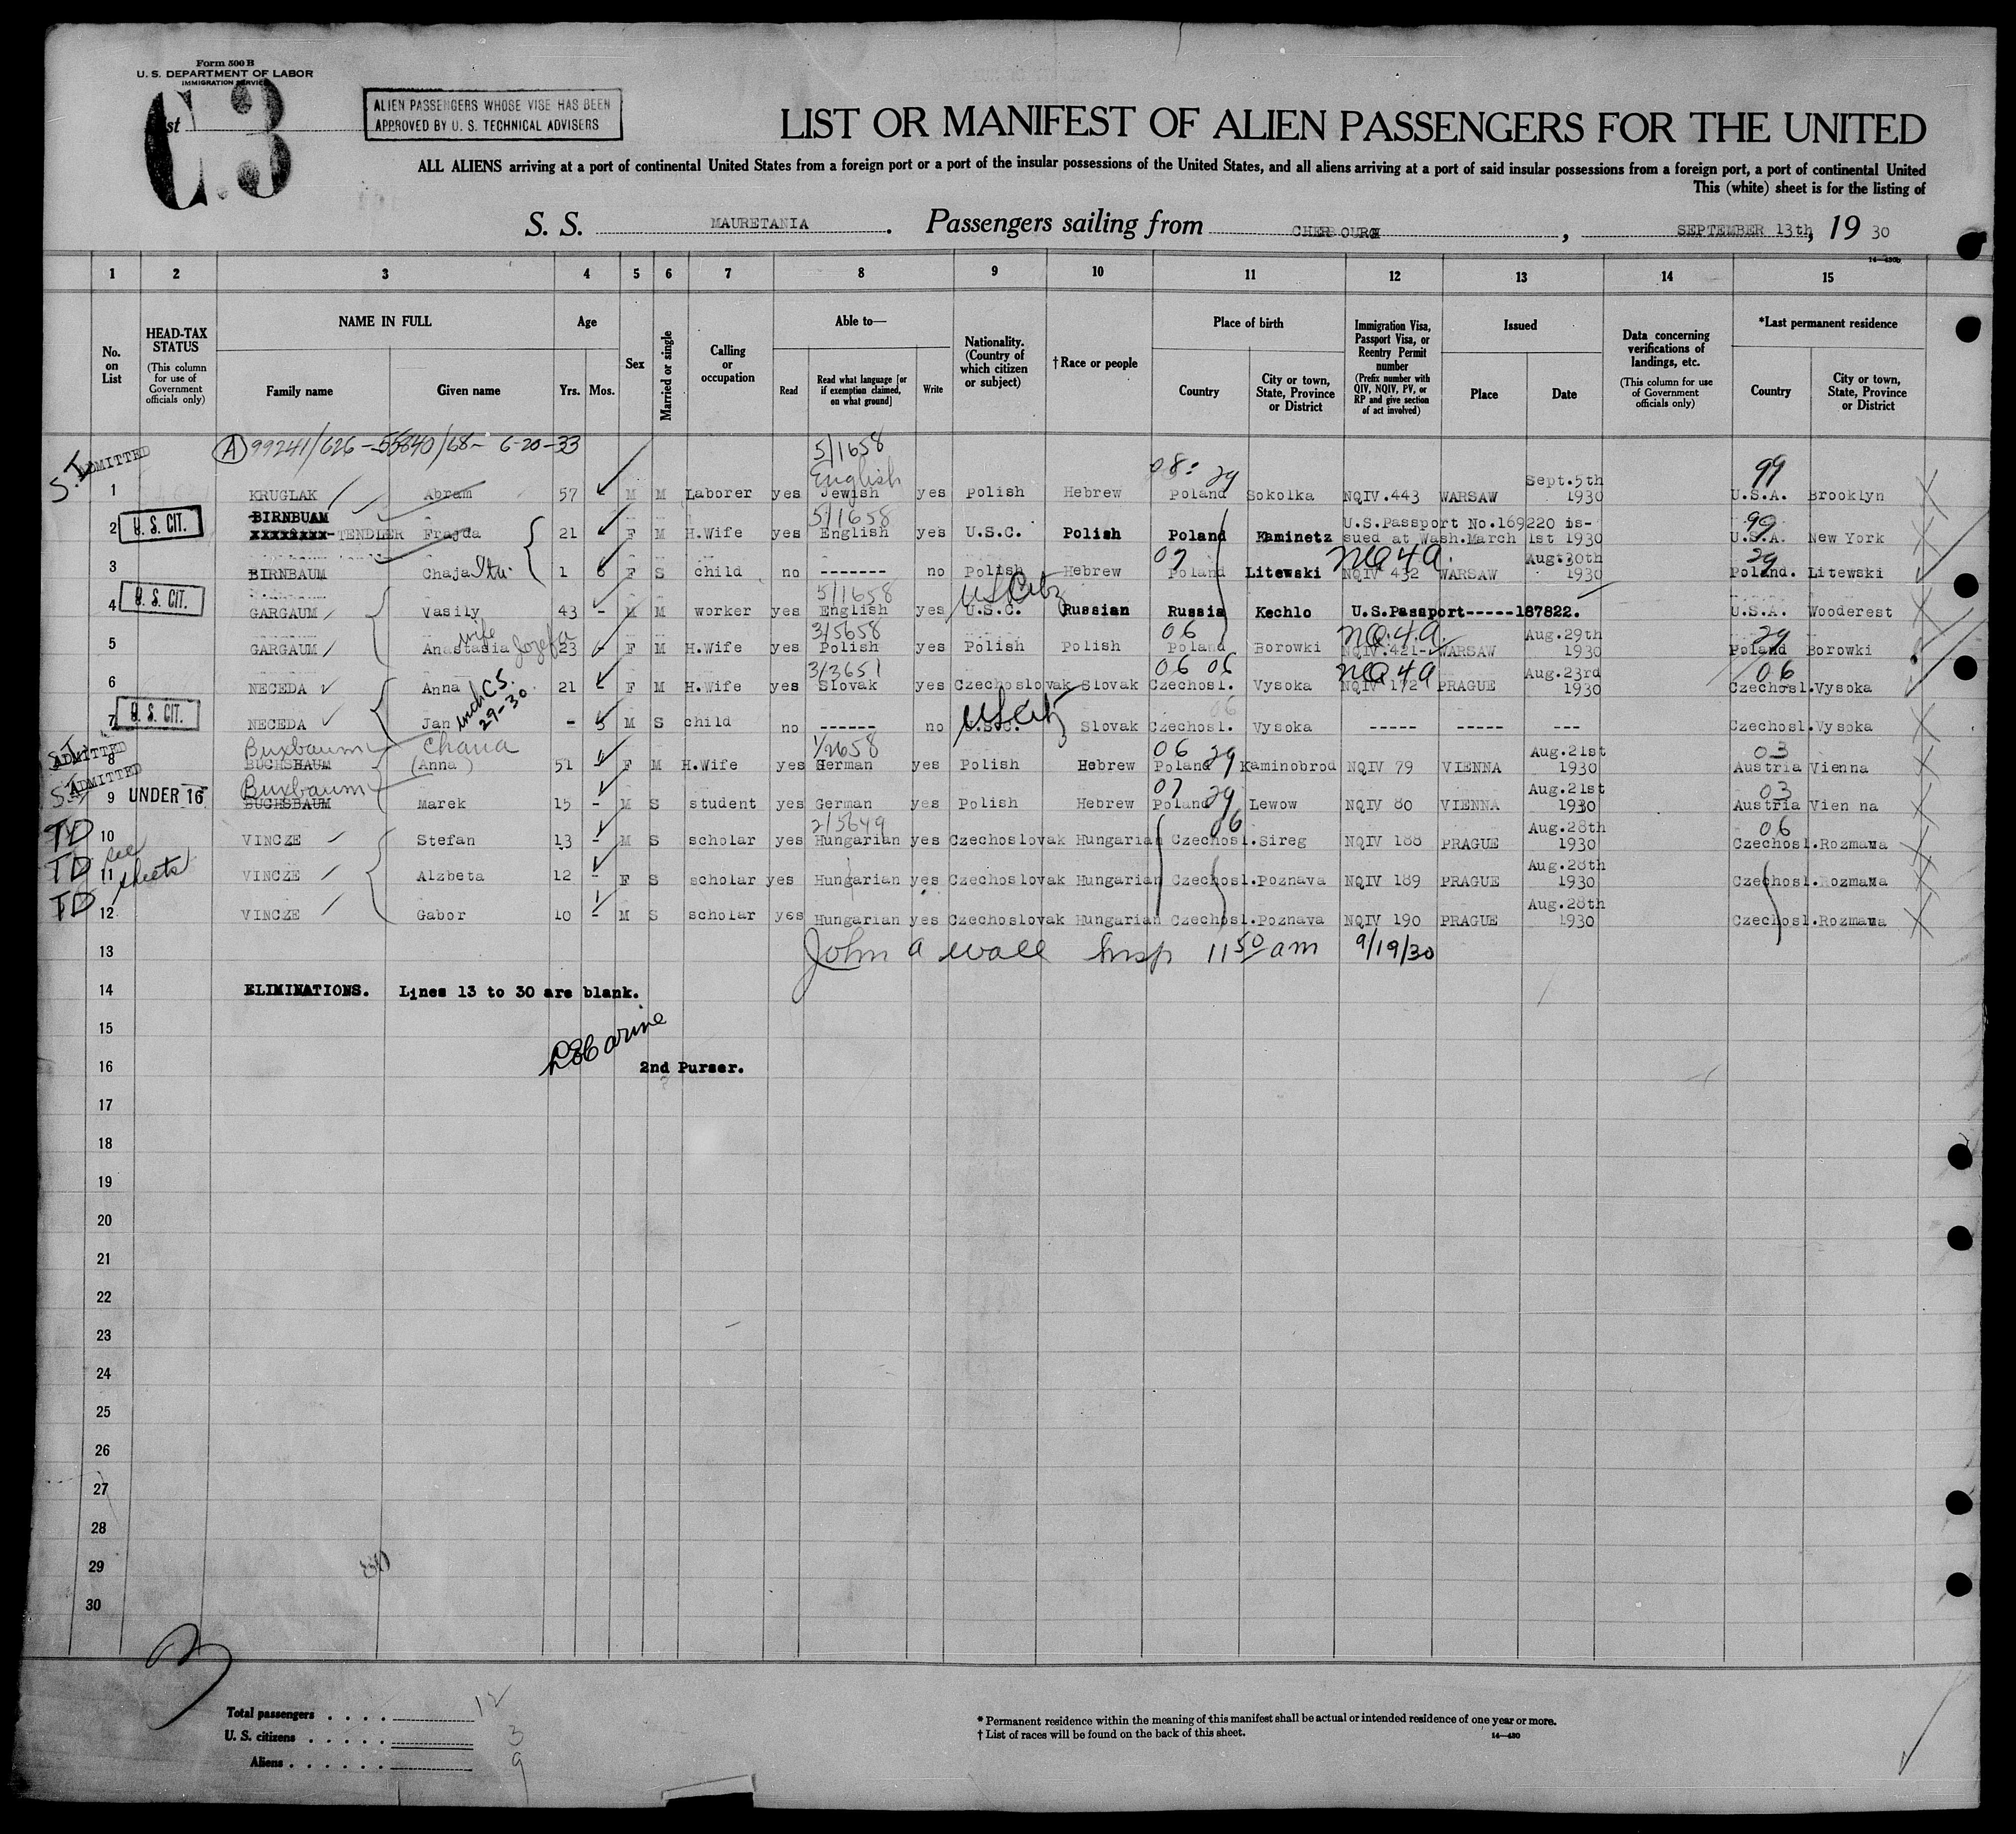 Form 500 B
U. S. DEPARTMENT OF LABOR
IMMIGRATION SERVICE
C.3
ALIEN PASSENGERS WHOSE VISE HAS BEEN
APPROVED BY U. S. TECHNICAL ADVISERS
LIST OR MANIFEST OF ALIEN PASSENGERS FOR THE UNITED
ALL ALIENS arriving at a port of continental United States from a foreign port or a port of the insular possessions of the United States, and all aliens arriving at a port of said insular possessions from a foreign port, a port of continental United
This (white) sheet is for the listing of
S. S. MAURETANIA. Passengers sailing from CHERBOURG, SEPTEMBER 13th, 19 30
1 2 3 4 5 6 7 8 9 10 11 12 13 14 15
No. on List
HEAD-TAX STATUS
(This column for use of Government officials only)
NAME IN FULL
Family name Given name
Age
Yrs. Mos.
Sex
Married or single
Calling or occupation
Able to—
Read Read what language [or if exemption claimed, on what ground] Write
Nationality. (Country of which citizen or subject)
† Race or people
Place of birth
Country City or town, State, Province or District
Immigration Visa, Passport Visa, or Reentry Permit number
(Prefix number with QIV, NQIV, PV, or RP and give section of act involved)
Issued
Place Date
Data concerning verifications of landings, etc.
(This column for use of Government officials only)
*Last permanent residence
Country City or town, State, Province or District
A 99241/626-55840/68- 6-20-33 5/1658
S.I. ADMITTED English 08: 29 Sept.5th 99
1 KRUGLAK Abram 57 M M Laborer yes Jewish yes Polish Hebrew Poland Sokolka NQIV.443 WARSAW 1930 U.S.A. Brooklyn
BIRNBUAM 5/1658 U.S.Passport No.169220 is- 99
2 U. S. CIT. xxxxxxxx-TENDLER Frajda 21 F M H.Wife yes English yes U.S.C. Polish Poland Kaminetz sued at Wash.March 1st 1930 U.S.A. New York
07 NQ 4a. Aug.30th 29
3 BIRNBAUM Chaja 1 6 F S child no ------- no Polish Hebrew Poland Litewski NQIV 432 WARSAW 1930 Poland. Litewski
5/1658 US Citz
4 U. S. CIT. GARGAUM Vasily 43 - M M worker yes English yes U.S.C. Russian Russia Kechlo U.S.Passport-----187822. U.S.A. Wooderest
wife Jozefa 3/5658 06 NQ.4a. Aug.29th 29
5 GARGAUM Anastasia 23 - F M H.Wife yes Polish yes Polish Polish Poland Borowki NQIV.421- WARSAW 1930 Poland Borowki
3/3651 06 06 NQ 4a Aug.23rd 06
6 NECEDA Anna 21 - F M H.Wife yes Slovak yes Czechoslovak Slovak Czechosl. Vysoka NQIV 172 PRAGUE 1930 Czechosl.Vysoka
US Citz 06
7 U. S. CIT. NECEDA Jan 29-30 - 5 M S child no ------ no U.S.C. Slovak Czechosl. Vysoka ----- ----- --- Czechosl.Vysoka
S.I. ADMITTED Buxbaum Chana 1/2658 06 29 Aug.21st 03
8 BUCHSBAUM (Anna) 51 F M H.Wife yes German yes Polish Hebrew Poland Kaminobrod NQIV 79 VIENNA 1930 Austria Vienna
S.I. ADMITTED Buxbaum 07 29 Aug.21st 03
9 UNDER 16 BUCHSBAUM Marek 15 - M S student yes German yes Polish Hebrew Poland Lewow NQIV 80 VIENNA 1930 Austria Vien na
TD 2/5649 06 Aug.28th 06
10 VINCZE Stefan 13 - M S scholar yes Hungarian yes Czechoslovak Hungarian Czechosl.Sireg NQIV 188 PRAGUE 1930 Czechosl.Rozmava
TD see sheets Aug.28th
11 VINCZE Alzbeta 12 - F S scholar yes Hungarian yes Czechoslovak Hungarian Czechosl.Poznava NQIV 189 PRAGUE 1930 Czechosl.Rozmava
TD Aug.28th
12 VINCZE Gabor 10 - M S scholar yes Hungarian yes Czechoslovak Hungarian Czechosl.Poznava NQIV 190 PRAGUE 1930 Czechosl.Rozmava
13 John a Wall Insp 11 50 am 9/19/30
14 ELIMINATIONS. Lines 13 to 30 are blank.
15
16 2nd Purser.
17
18
19
20
21
22
23
24
25
26
27
28
29
30
Total passengers . . . . 12
U. S. citizens . . . . . 3
Aliens . . . . . . 9
* Permanent residence within the meaning of this manifest shall be actual or intended residence of one year or more.
† List of races will be found on the back of this sheet.
14—430